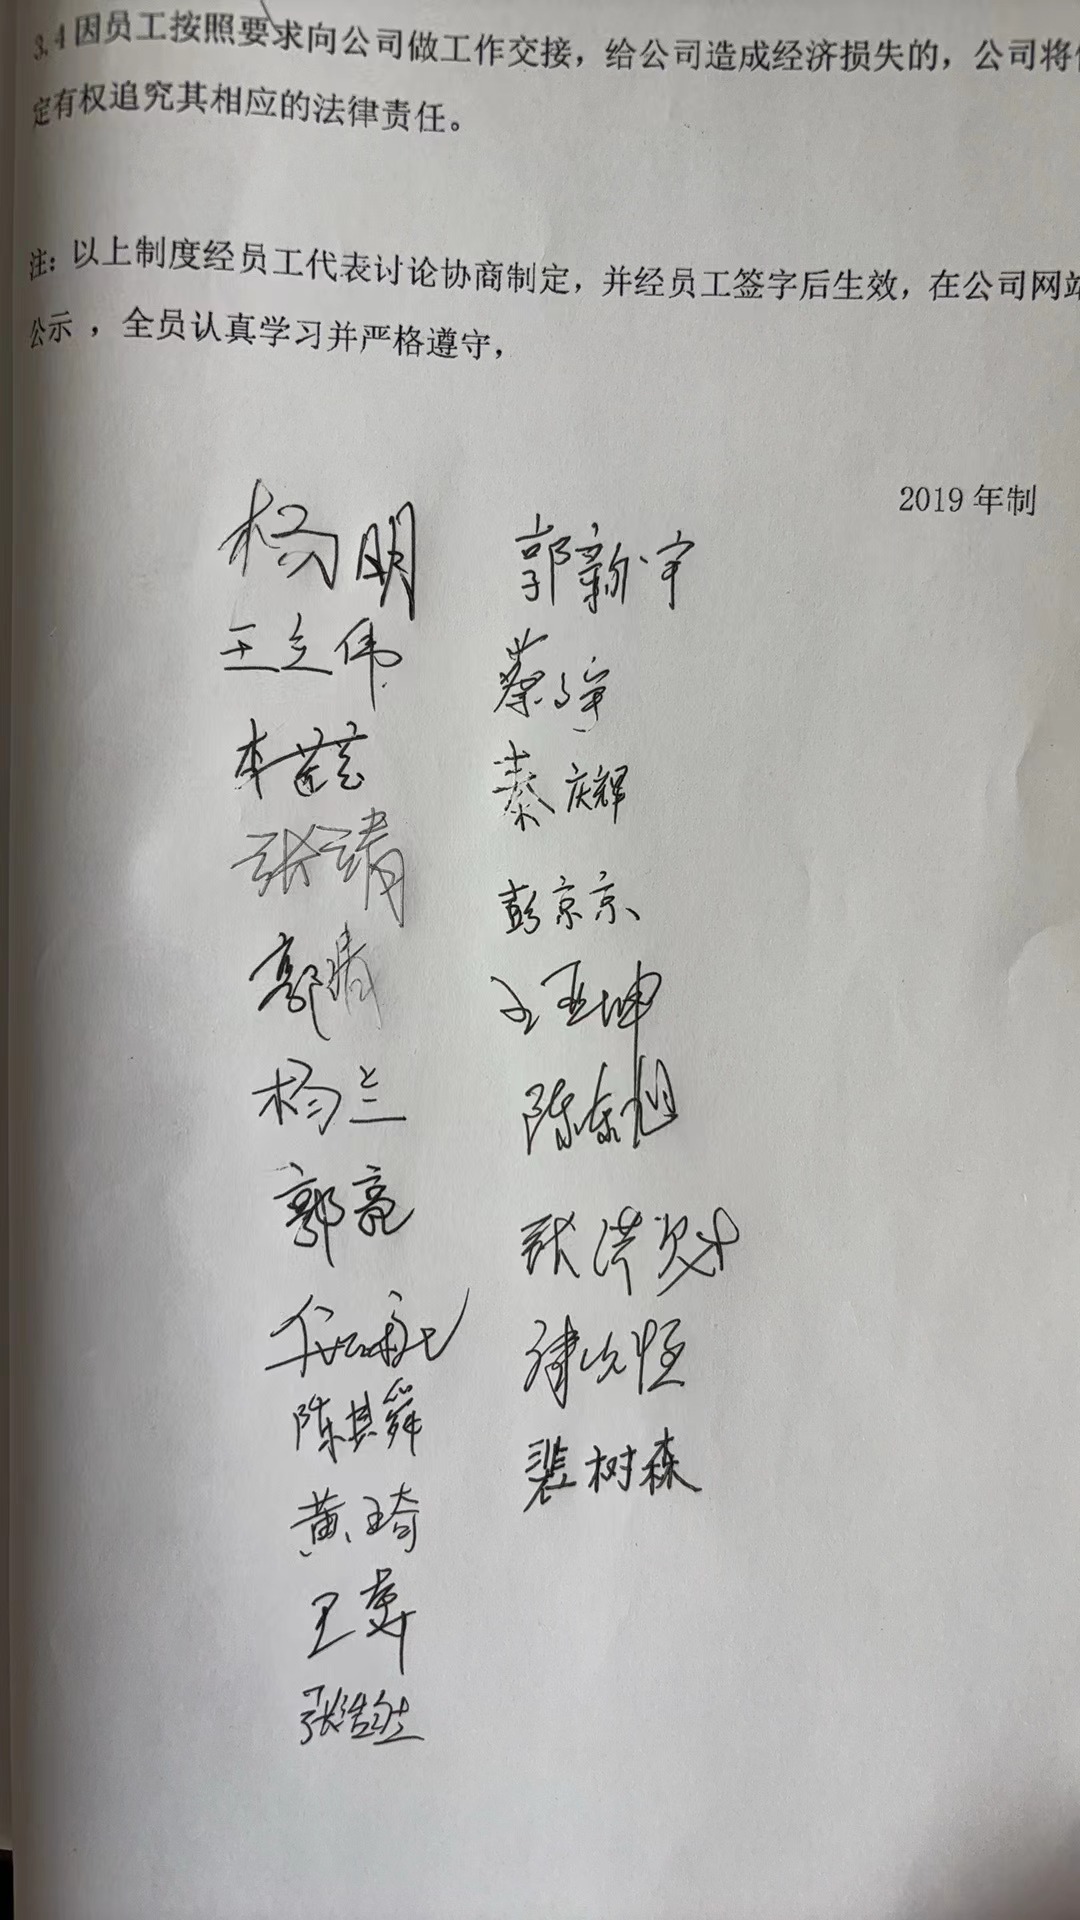 3.4因员工按照要求向公司做工作交接，给公司造成经济损失的，公司将
定有权追究其相应的法律责任。
注：以上制度经员工代表讨论协商制定，并经员工签字后生效，在公司网站
公示 ，全员认真学习并严格遵守，
2019 年制
杨明
郭新宇
王立伟
蔡
李
秦庆辉
张靖
彭京京
郭靖
王亚坤
杨兰
陈东旭
郭亮
张洪
陈其舜
裴树森
黄琦
王
张浩